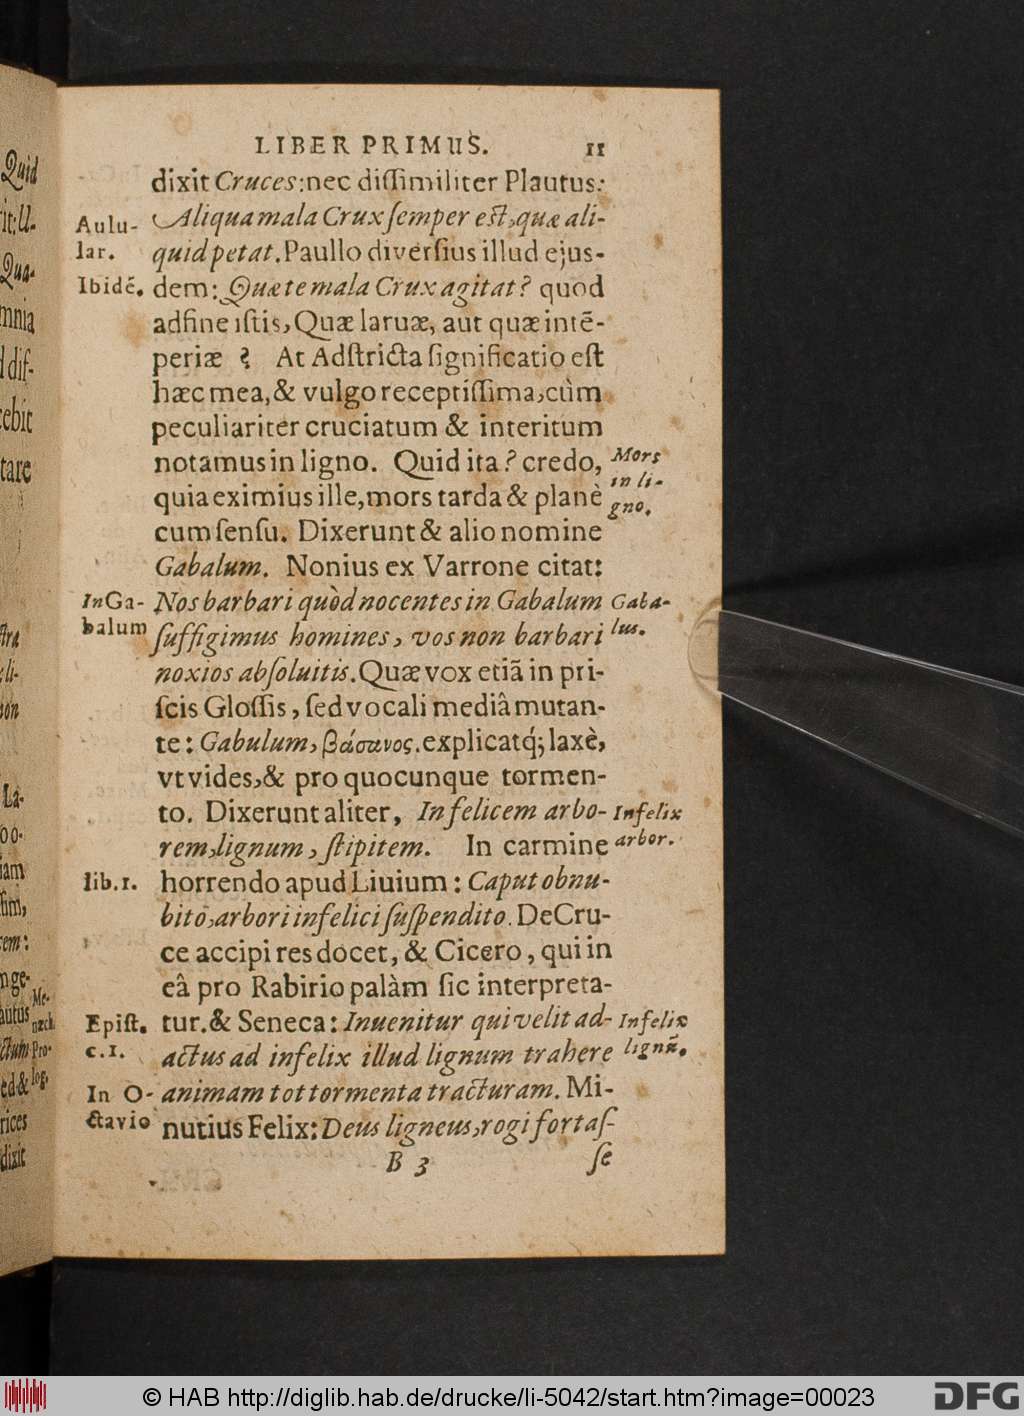 LIBER PRIMUS. 11
dixit Cruces: nec dissimiliter Plautus:
Aliqua mala Crux semper est, quæ ali-
quid petat. Paullo diversius illud ejus-
dem: Quæ te mala Crux agitat? quod
adfine istis, Quæ laruæ, aut quæ intē-
periæ? At Adstricta significatio est
hæc mea, & vulgo receptissima, cùm
peculiariter cruciatum & interitum
notamus in ligno. Quid ita? credo,
quia eximius ille, mors tarda & planè
cum sensu. Dixerunt & alio nomine
Gabalum. Nonius ex Varrone citat:
Nos barbari quòd nocentes in Gabalum
suffigimus homines, vos non barbari
noxios absoluitis. Quæ vox etiā in pri-
scis Glossis, sed vocali mediâ mutan-
te: Gabulum, βάσανος. explicatq́; laxè,
vt vides, & pro quocunque tormen-
to. Dixerunt aliter, Infelicem arbo-
rem, lignum, stipitem. In carmine
horrendo apud Liuium: Caput obnu-
bitō, arbori infelici suspendito. De Cru-
ce accipi res docet, & Cicero, qui in
eâ pro Rabirio palàm sic interpreta-
tur. & Seneca: Inuenitur qui velit ad-
actus ad infelix illud lignum trahere
animam tot tormenta tracturam. Mi-
nutius Felix: Deus ligneus, rogi fortas-
B 3 se
Aulu-
lar.
Ibidē.
In Ga-
balum
lib. 1.
Epist.
c. 1.
In O-
ctavio
Mors
in li-
gno.
Gaba-
lus.
Infelix
arbor.
Infelix
lignū.
Quid
Qua-
mnia
dif-
cebit
tare
li-
La-
iam
nge-
Me-
næch.
Pro-
log.
ed &
dixit
© HAB http://diglib.hab.de/drucke/li-5042/start.htm?image=00023
DFG